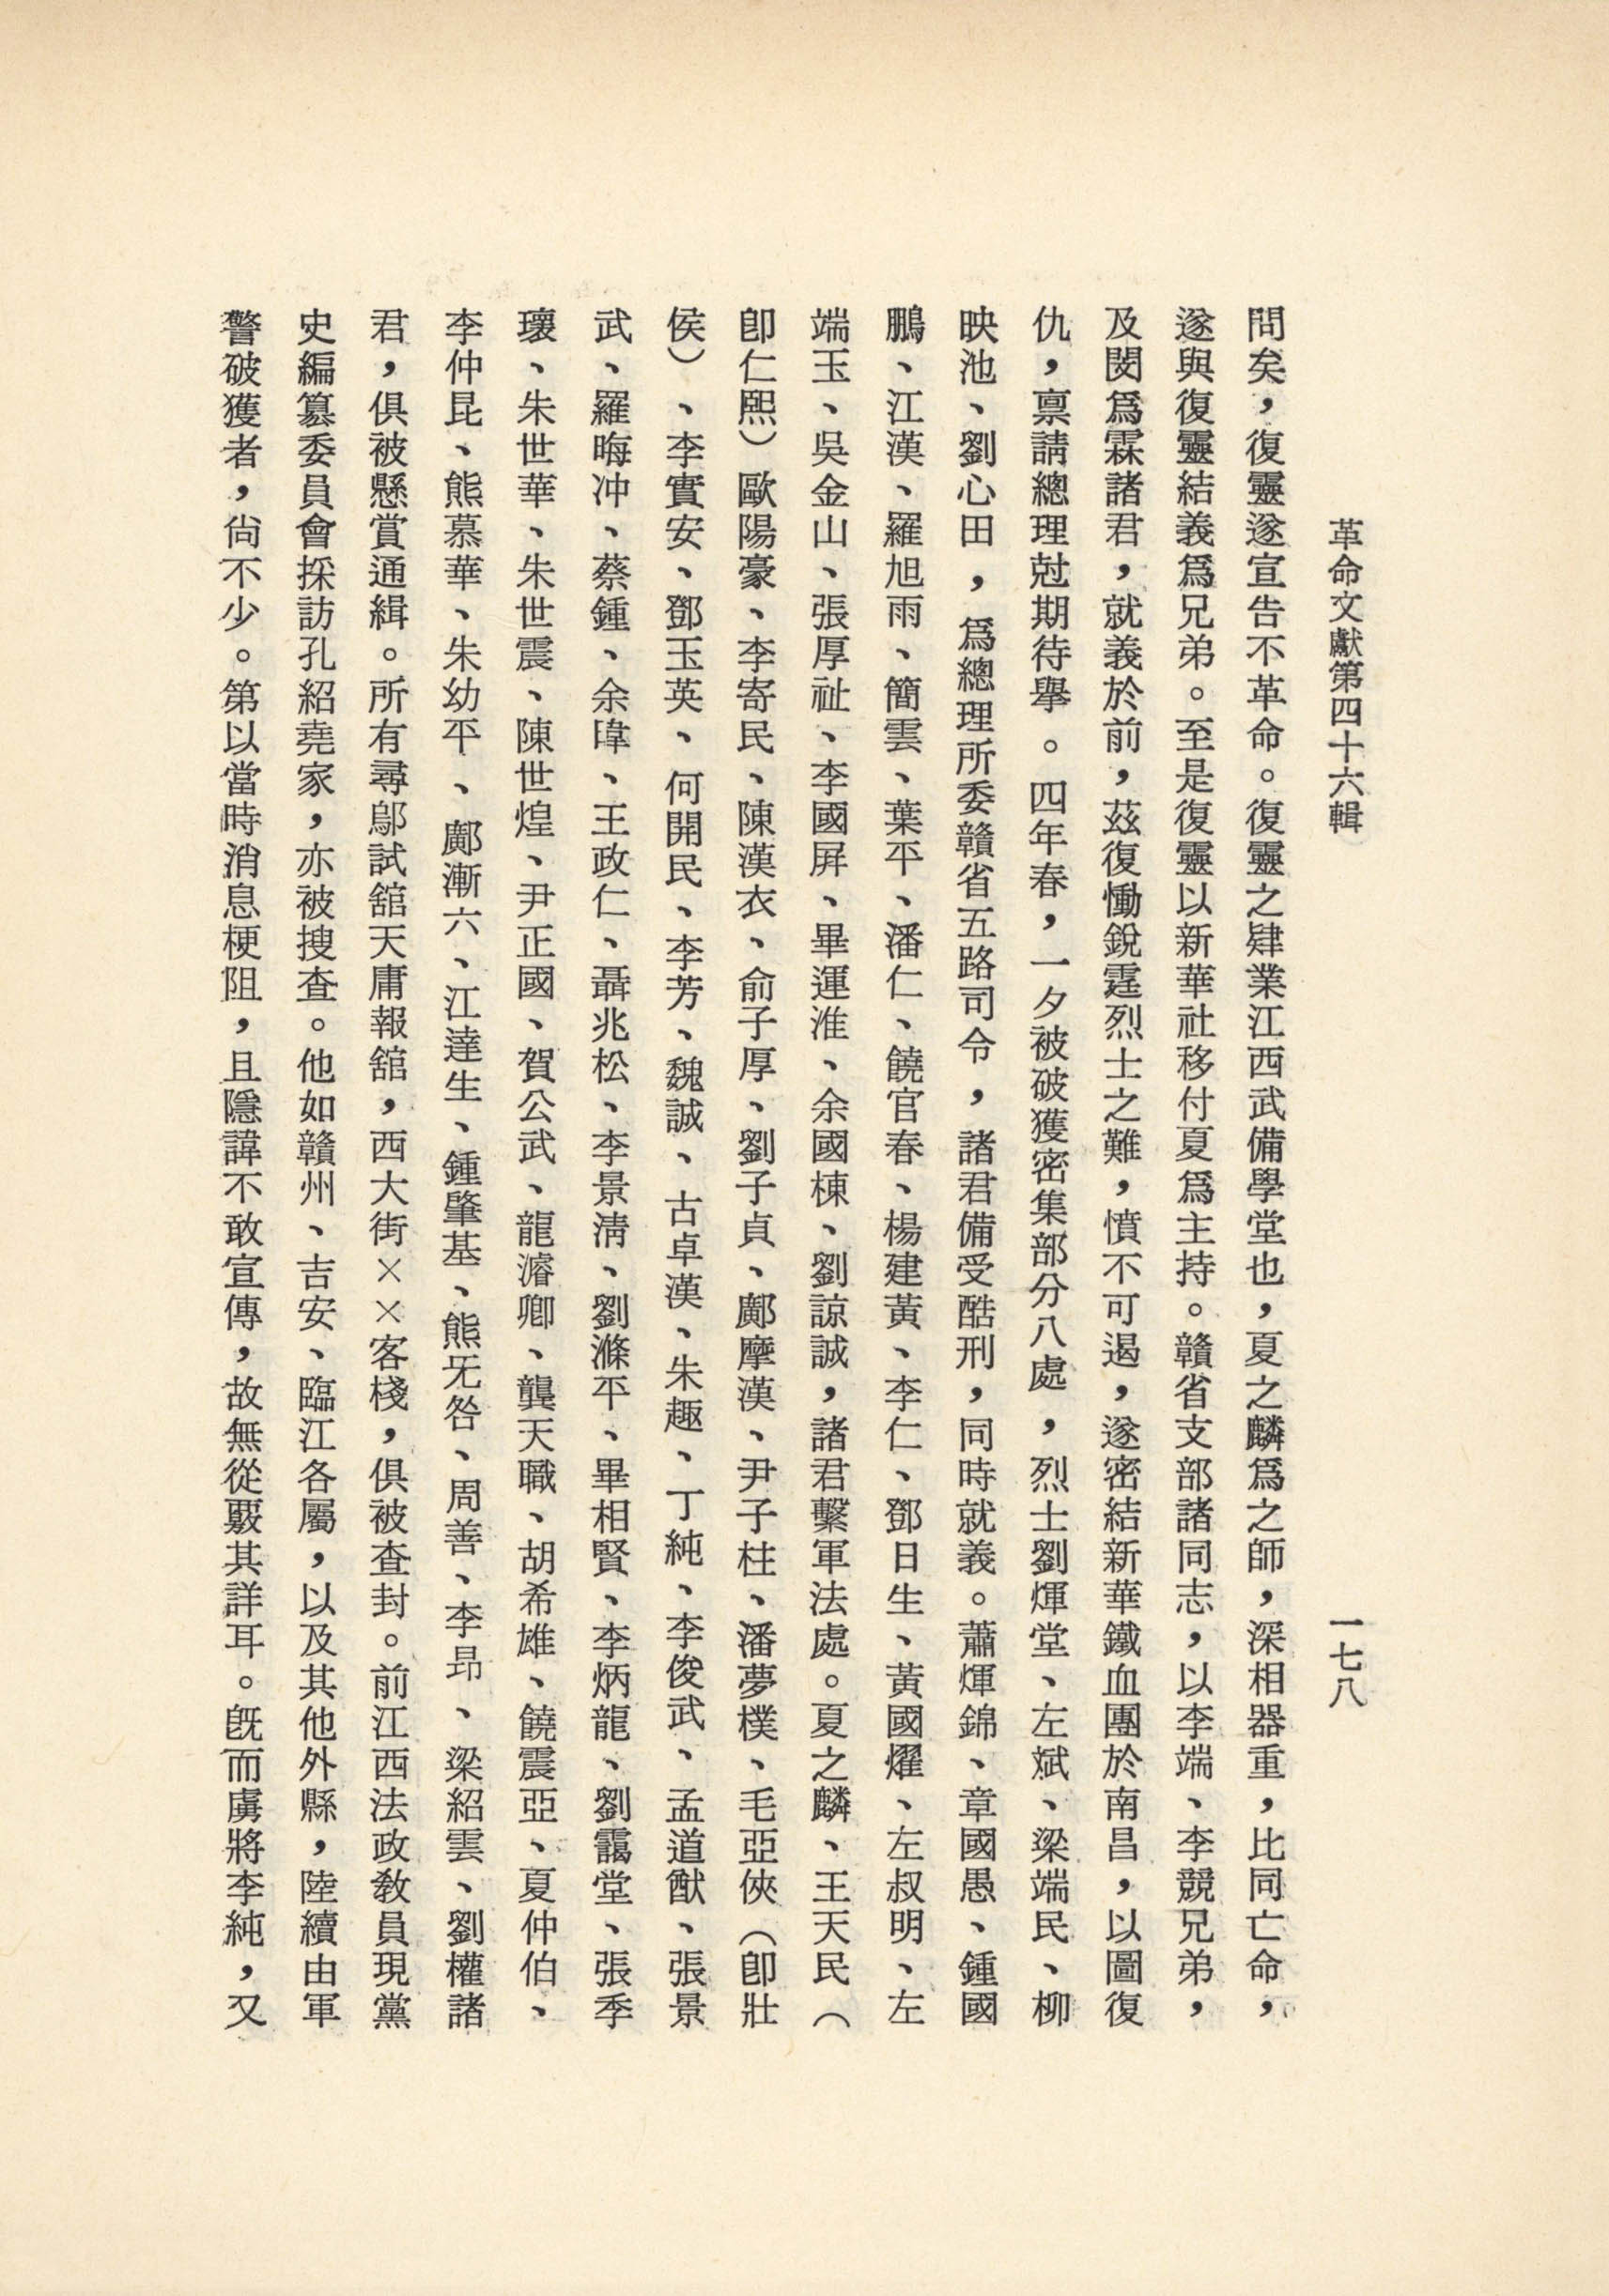 革命文獻第四十六輯
一七八
問矣，復靈遂宣告不革命。復靈之肄業江西武備學堂也，夏之麟爲之師，深相器重，比同亡命，
遂與復靈結義爲兄弟。至是復靈以新華社移付夏爲主持。贛省支部諸同志，以李端、李競兄弟，
及閔爲霖諸君，就義於前，茲復慟銳霆烈士之難，憤不可遏，遂密結新華鐵血團於南昌，以圖復
仇，禀請總理尅期待舉。四年春，一夕被破獲密集部分八處，烈士劉煇堂、左斌、梁端民、柳
映池、劉心田，爲總理所委贛省五路司令，諸君備受酷刑，同時就義。蕭煇錦、章國愚、鍾國
鵬、江漢、羅旭雨、簡雲、葉平、潘仁、饒官春、楊建黃、李仁、鄧日生、黃國燿、左叔明、左
端玉、吳金山、張厚祉、李國屛、畢運淮、余國棟、劉諒誠，諸君繫軍法處。夏之麟、王天民（
卽仁熙）歐陽豪、李寄民、陳漢衣、俞子厚、劉子貞、鄺摩漢、尹子柱、潘夢樸、毛亞俠（卽壯
侯）、李實安、鄧玉英、何開民、李芳、魏誠、古卓漢、朱趣、丁純、李俊武、孟道猷、張景
武、羅晦冲、蔡鍾、余暐、王政仁、聶兆松、李景淸、劉滌平、畢相賢、李炳龍、劉靄堂、張季
瓌、朱世華、朱世震、陳世煌、尹正國、賀公武、龍濬卿、龔天職、胡希雄、饒震亞、夏仲伯、
李仲昆、熊慕華、朱幼平、鄺漸六、江達生、鍾肇基、熊旡咎、周善、李昂、梁紹雲、劉權諸
君，俱被懸賞通緝。所有尋鄔試舘天庸報舘，西大街××客棧，俱被查封。前江西法政敎員現黨
史編纂委員會採訪孔紹堯家，亦被搜查。他如贛州、吉安、臨江各屬，以及其他外縣，陸續由軍
警破獲者，尙不少。第以當時消息梗阻，且隱諱不敢宣傳，故無從覈其詳耳。旣而虜將李純，又